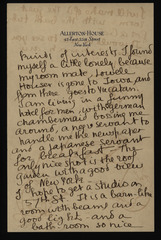 ALLERTON HOUSE
45 East 55th Street
New York
Points of interest. I found
myself a little lonely because
my room mate, Louelle
Houses is gone to Iowa, and
from there goes to Yucatan.
I am living in a funny
hotel for men, with German
chambermaids bossing me
around, a negro servant to
handle me the newspaper
and a Japanese servant
for breakfast. The
only nice spot is the roof
garden with a good view
of New York.
I hope to get a studio on
57th St. It is a barn-like
room with beams and a
good light - and a
bath-room so nice